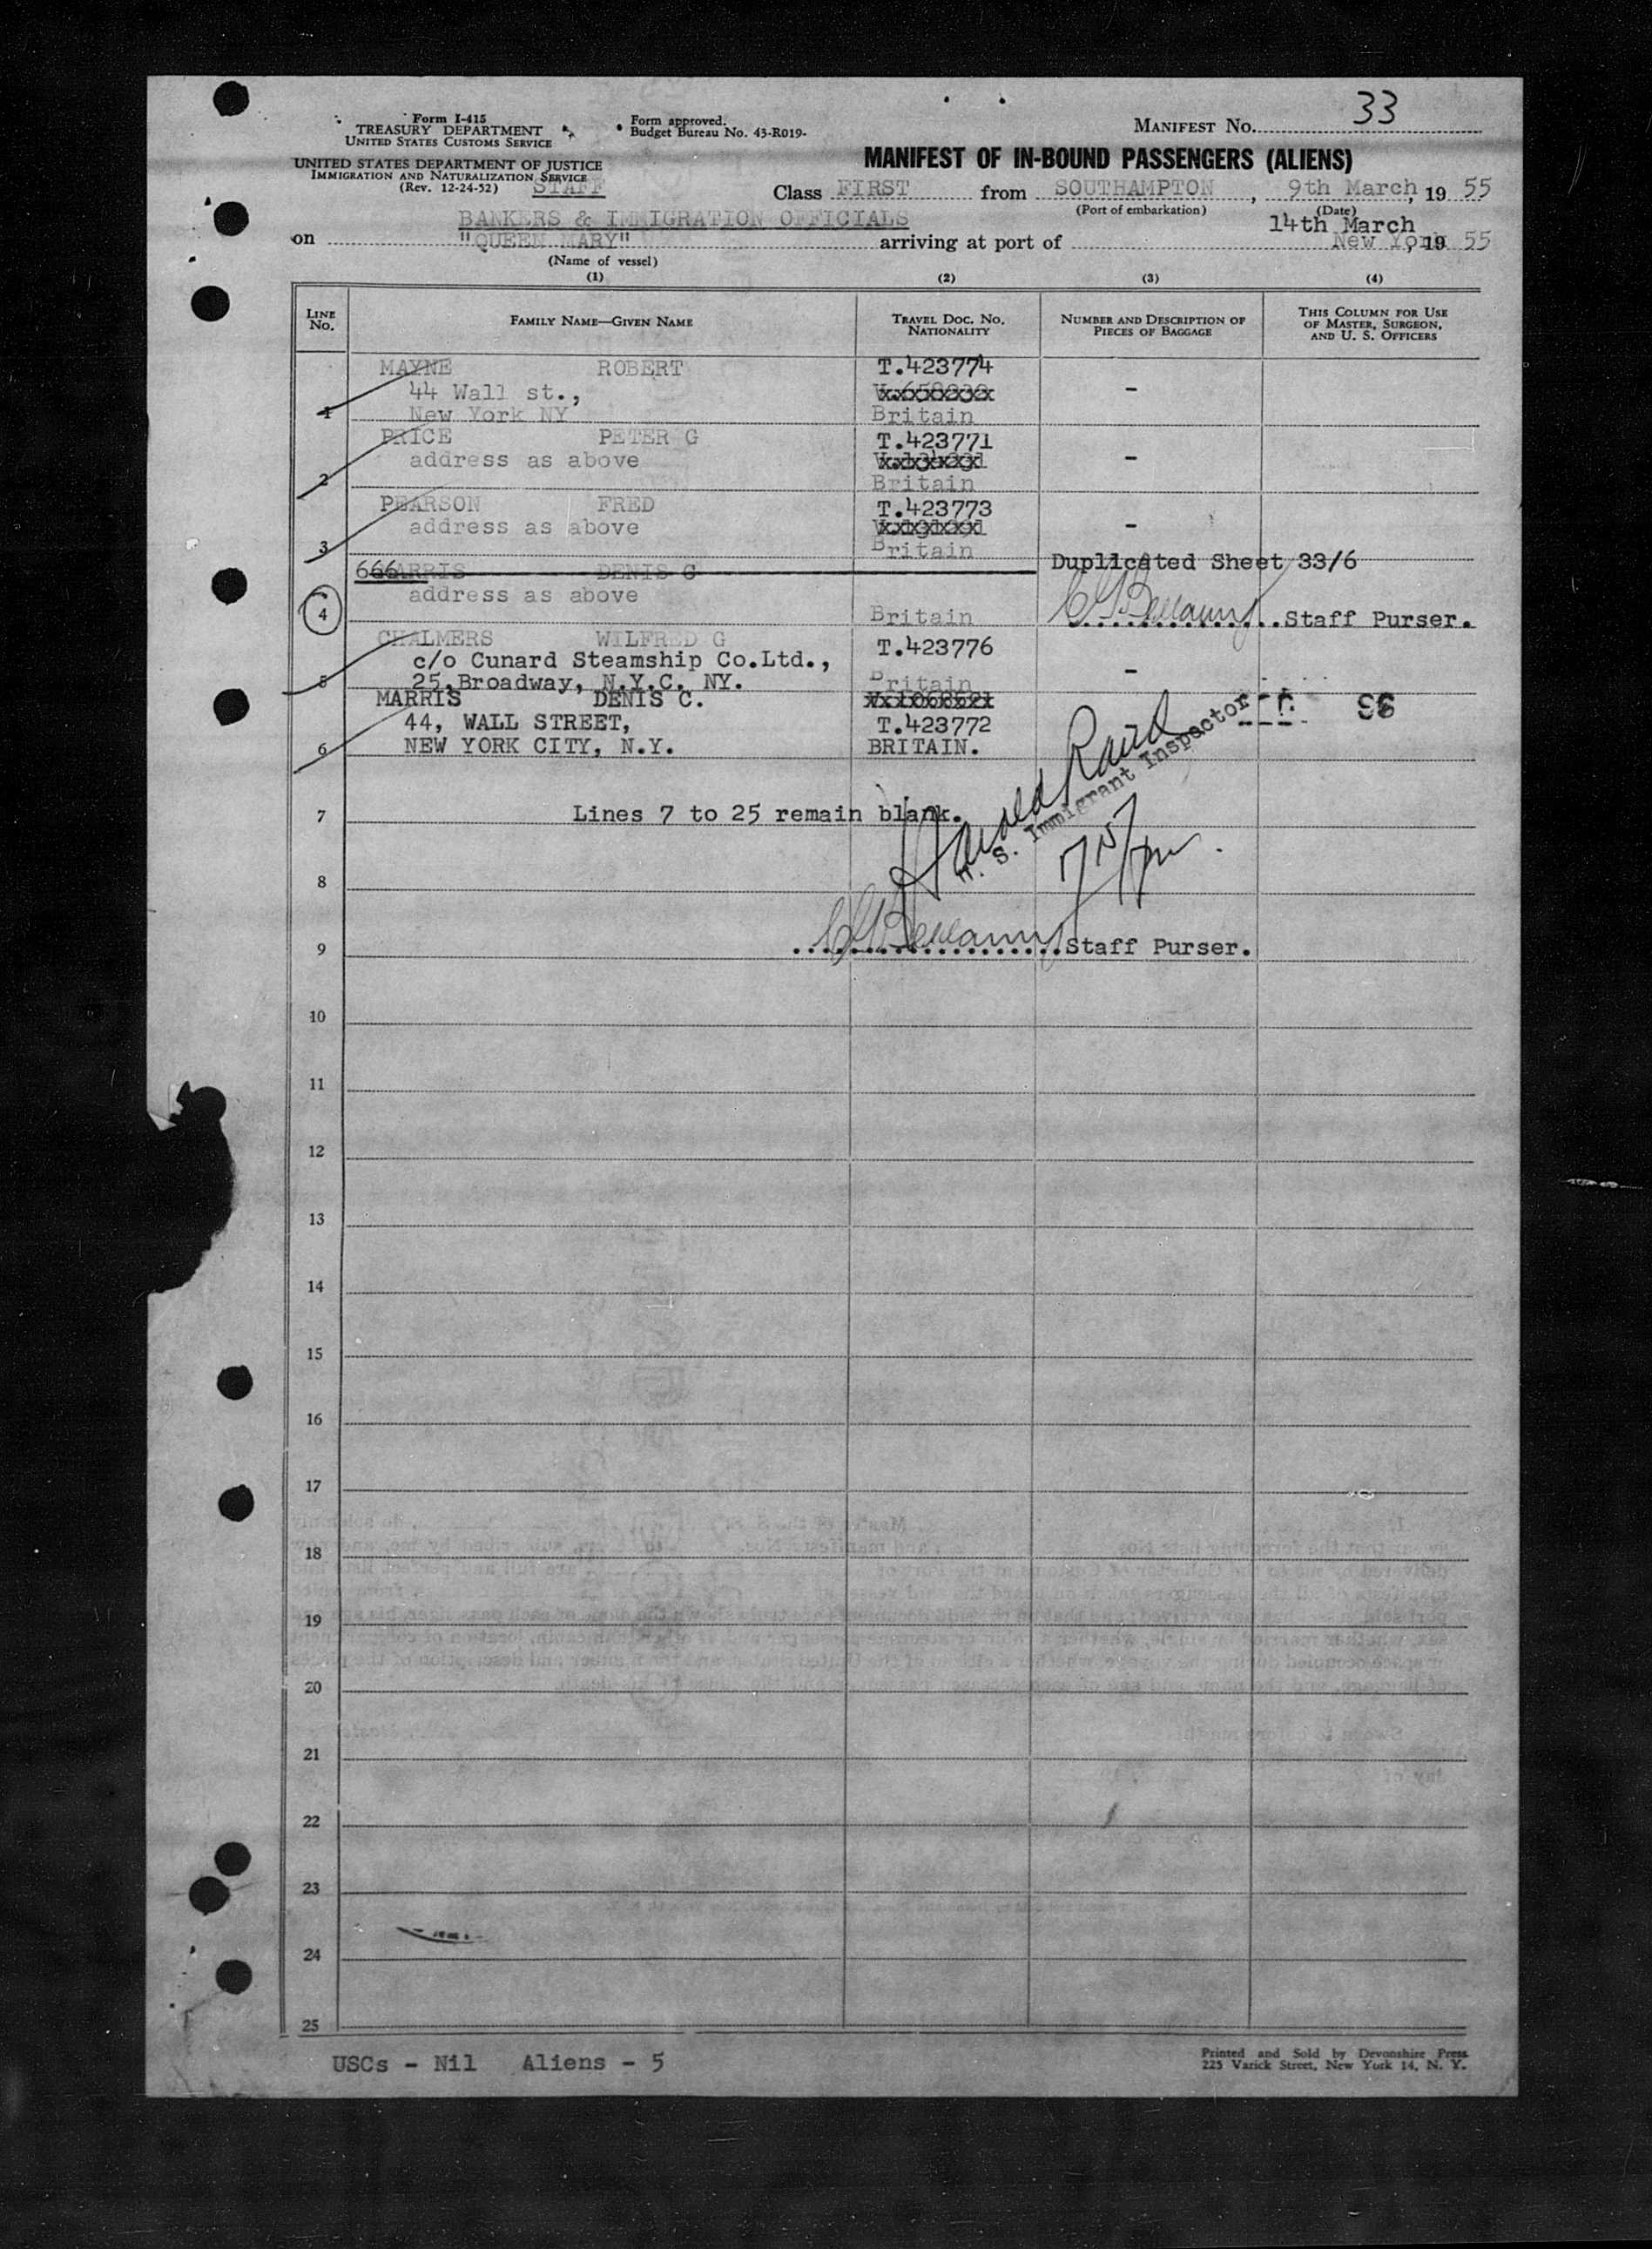 Form I-415
TREASURY DEPARTMENT
UNITED STATES CUSTOMS SERVICE
Form approved.
Budget Bureau No. 43-R019-
MANIFEST NO. 33
UNITED STATES DEPARTMENT OF JUSTICE
IMMIGRATION AND NATURALIZATION SERVICE
(Rev. 12-24-52) STAFF
MANIFEST OF IN-BOUND PASSENGERS (ALIENS)
Class FIRST from SOUTHAMPTON, 9th March, 19 55
(Port of embarkation) (Date)
BANKERS & IMMIGRATION OFFICIALS
14th March
on "QUEEN MARY" arriving at port of New York, 19 55
(Name of vessel)
(1) (2) (3) (4)
LINE NO.
FAMILY NAME—GIVEN NAME
TRAVEL DOC. NO. NATIONALITY
NUMBER AND DESCRIPTION OF PIECES OF BAGGAGE
THIS COLUMN FOR USE OF MASTER, SURGEON, AND U. S. OFFICERS
MAYNE ROBERT T.423774
44 Wall st., -
1 New York NY Britain
PRICE PETER G T.423771
address as above -
2 Britain
PEARSON FRED T.423773
address as above -
3 Britain
Duplicated Sheet 33/6
666 MARRIS DENIS G
address as above
4 Britain C G Bellamy Staff Purser.
CHALMERS WILFRED G T.423776
c/o Cunard Steamship Co.Ltd., -
5 25,Broadway, N.Y.C. NY. Britain
MARRIS DENIS C.
44, WALL STREET, T.423772
6 NEW YORK CITY, N.Y. BRITAIN.
Harold Raird
S. Immigrant Inspector
7 Lines 7 to 25 remain blank.
8
9 C G Bellamy Staff Purser.
10
11
12
13
14
15
16
17
18
19
20
21
22
23
24
25
USCs - Nil Aliens - 5
Printed and Sold by Devonshire Press
225 Varick Street, New York 14, N. Y.